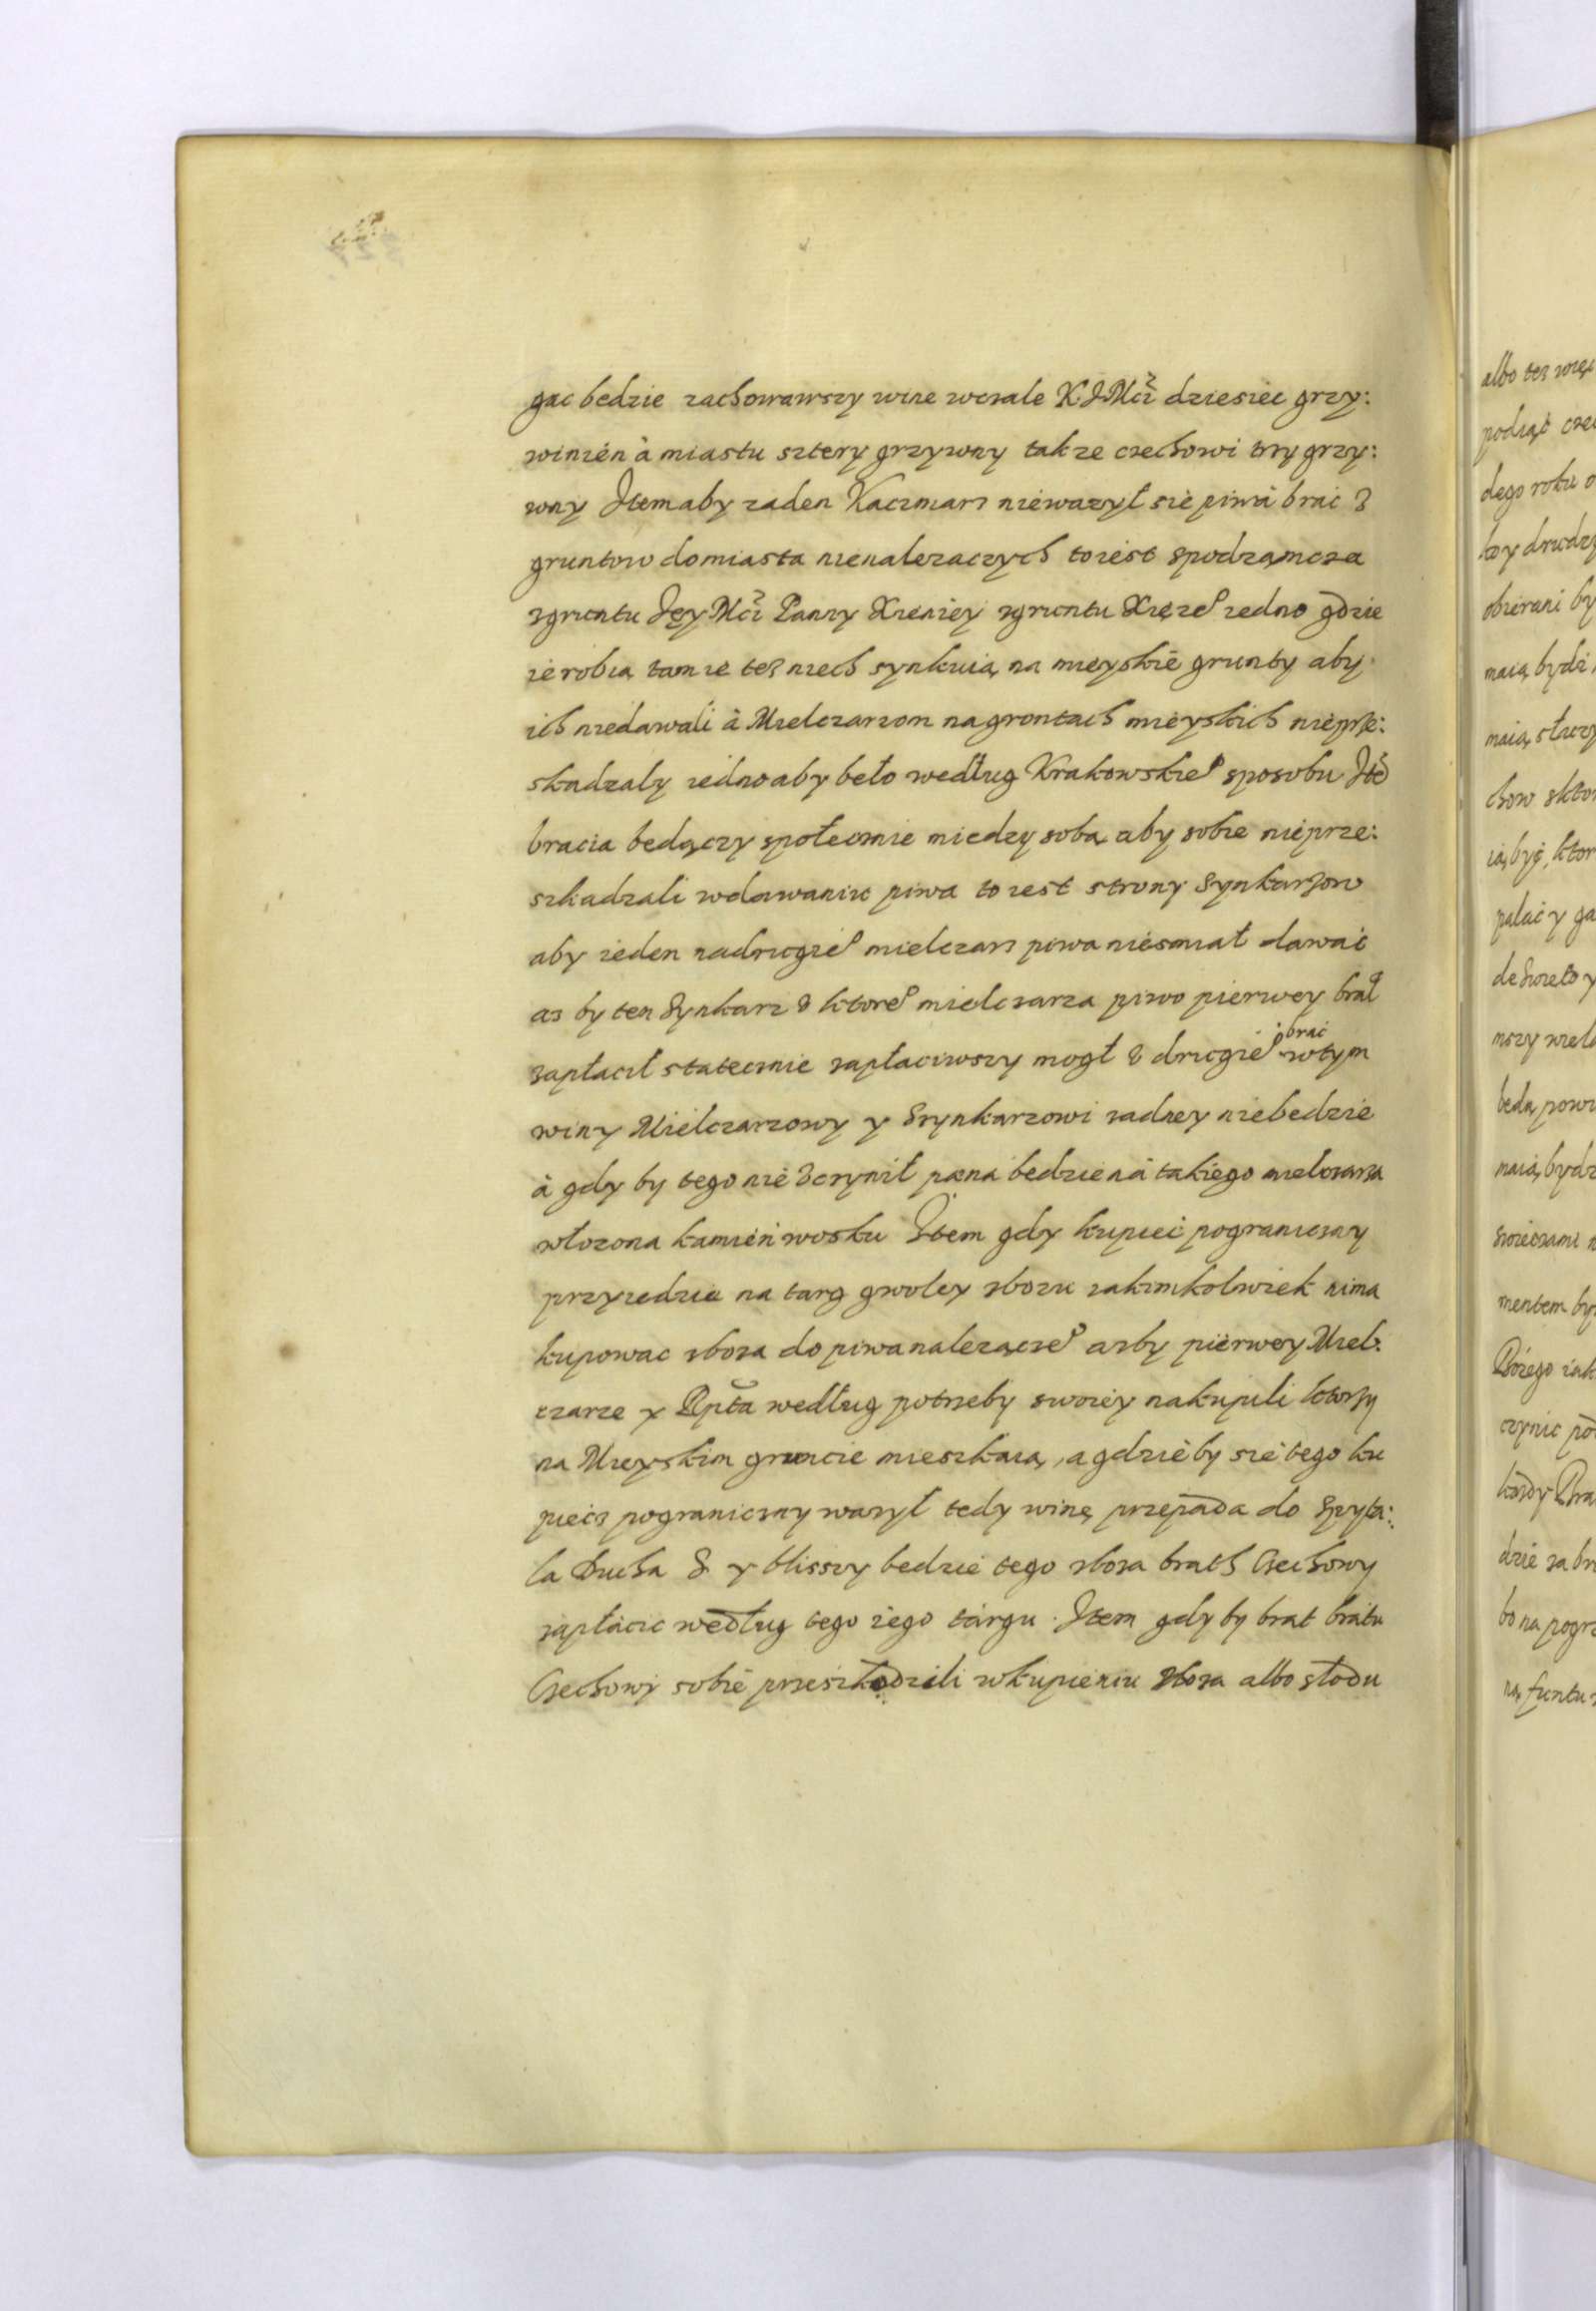 gac bedzie zachowawszy wine wcale K J Mći dziesiec grzy:
winień à miastu sztery grzywny takze czechowi try grzy:
wny Jtem aby zaden Kaczmarz nieważył sie piwa brać z
gruntow do miasta nienalezaczych to iest spodzamcza
zgruntu Jey Mći Panny Xieniey zgruntu Xięze⁰ iedno gdzie
ie robią tam ie też niech synkuią na mieyskie grunty aby
ich niedawali à Mielczarzom na grontach mieyskich nieprze:
skadzaly iedno aby beło według Krakowskie⁰ sposobu Jtē
bracia bedączy społecznie miedzy sobą aby sobie nieprze:
szkadzali wdawaniu piwa to iest strony Synkarzow
aby ieden nadrugie⁰ mielczarz piwa nieśmiał dawać
az by ten Synkarz v ktore⁰ mielczarza piwo pierwey brał
zapłacił statecznie zapłaciwszy mogł v drugie⁰ brać wtym
winy Mielczarzowy y Srynkarzowi zadney niebedzie
à gdy by tego nie vczynił pæna bedzie nà takiego mielczarza
włozona kamień wosku Jtem gdy kupieć pograniczny
przyiedzie na targ gwoley zbozu iakimkolwiek nima
kupowac zboza do piwa nalezącze⁰ azby pierwey Miel:
czarze y Rpta według potrzeby swoiey nakupili ktorzy
na Mieyskim gruncie mieszkaią, a gdzieby sie tego ku
piecz pograniczny wazył tedy winę przepada do Szpyta:
la Ducha S y blisszy bedzie tego zboza brath Czechowy
zapłacic według tego iego tárgu. Jtem gdy by brat bratu
Czechowy sobie przeszkodzili wkupieniu zboza albo słodu
albo tez
podiąć
dego roku
obierani
maią bydź
maią
chow
ią być, ktor
palać y
będą
maią bydź
mentem
Bożego
czynic
dzie za
bo na
funtu